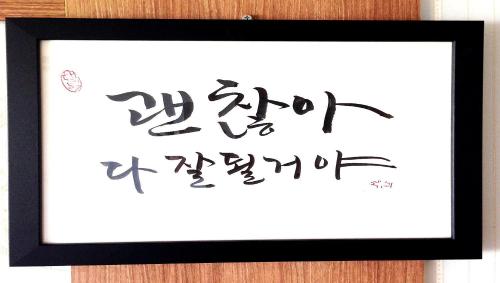 괜찮아
다 잘될거야